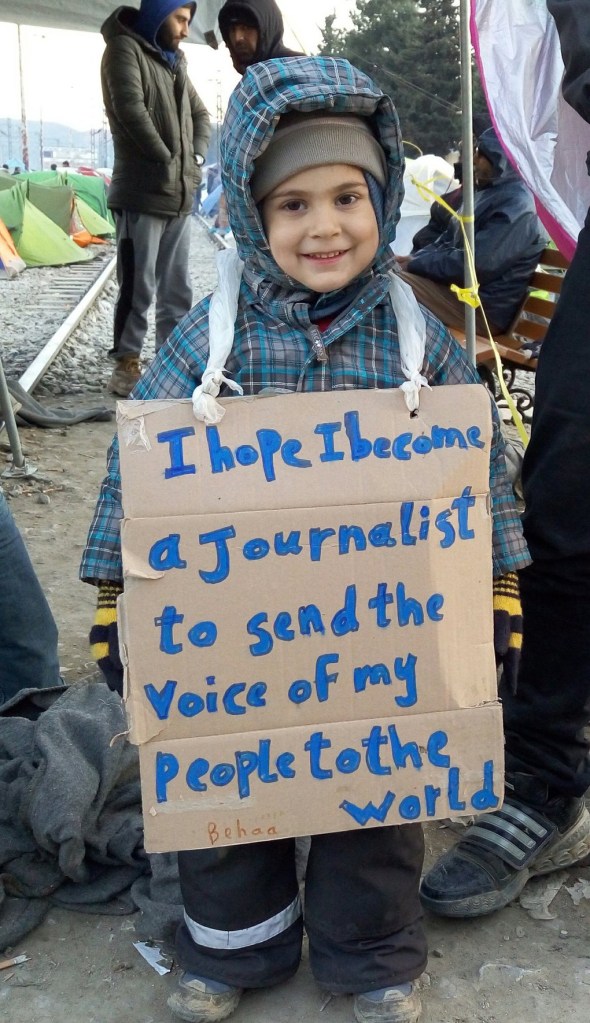 I hope I become
a Journalist
to send the
Voice of my
people to the
World
Behaa